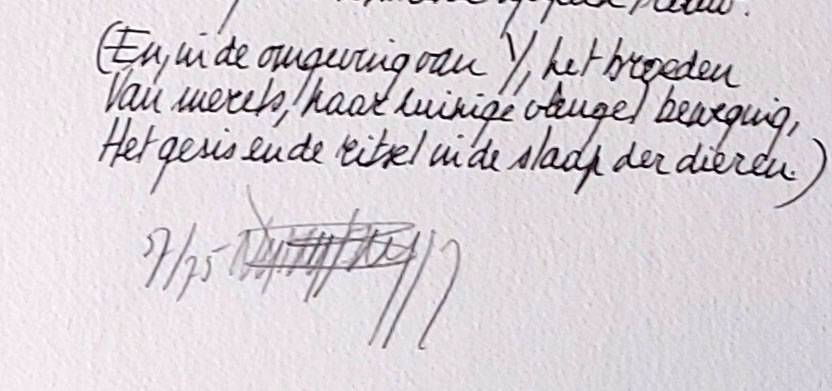 (En, in de omgeving van Y, het broeden
Van merels, haar zuinige vleugel beweging,
Het gesis en de ritsel in de slaap der dieren.)
57/75